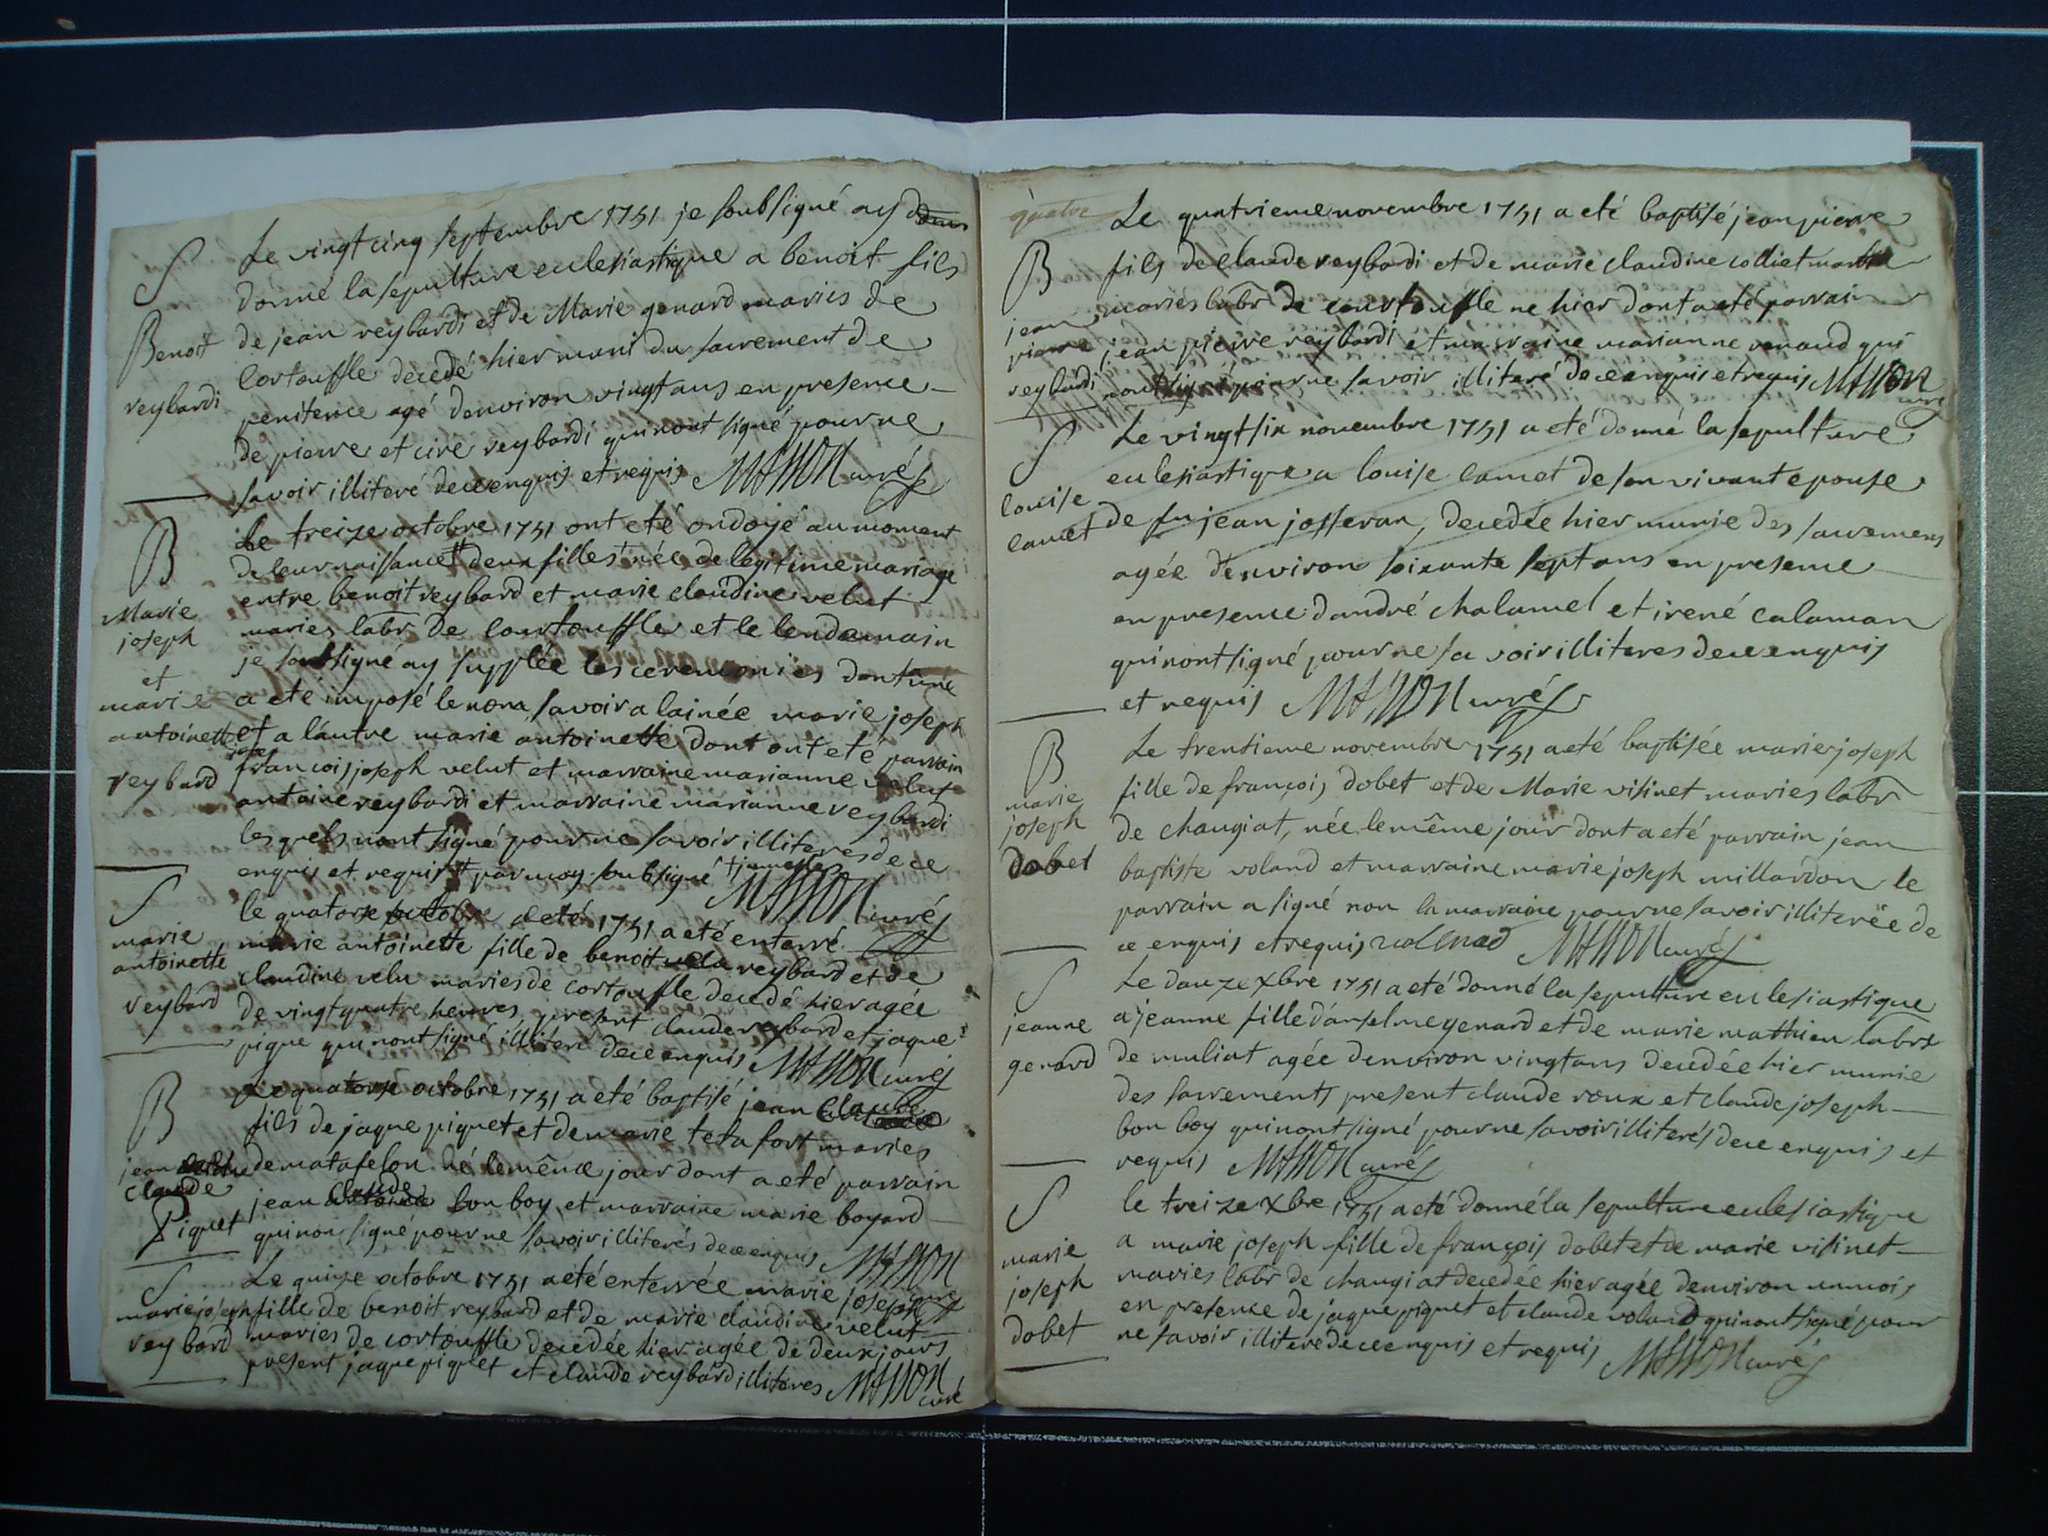 S
Benoit
reybardi
Le vingt cinq septembre 1751 je soubsigné ay
donné la sepulture eclesiastique a benoit fils
de jean reybardi et de Marie genard maries de
Cortouffle decedé hier muni du sacrement de
penitence agé denviron vingt ans en presence
de pierre et cire reybardi qui nont signé pour ne
savoir illiteré de ce enquis et requis MASSON curé
B
Marie
joseph
et
marie
antoinette
reybard
Le treize octobre 1751 ont eté ondoyé au moment
de leur naissance deux filles née de legitime mariage
entre benoit reybard et marie claudine velut
maries labr de Courtouffle et le lendemain
je soubsigné ay supplée les ceremonies dont une
a eté imposé le nom savoir a lainée marie joseph
et a lautre marie antoinette dont ont eté parrain
francois joseph velut et marraine marianne velut
antoine reybardi et marraine marianne reybardi
lesquels nont signé pour ne savoir illiteres de ce
enquis et requis par moy soubsigné MASSON curé
S
marie
antoinette
reybard
le quatorze octobre 1751 a eté enterré
marie antoinette fille de benoit reybard et de
claudine velu maries de cortouffle decedé hier agée
de vingt quatre heures, present claude reybard et jaque
pique qui nont signé illiteré de ce enquis MASSON curé
B
jean
claude
Piquet
Le quatorze octobre 1751 a eté baptisé jean Claude
fils de jaque piquet et de marie tetafort maries
de matafelon né le même jour dont a eté parrain
jean Claude bon boy et marraine marie boyard
qui non signé pour ne savoir illiterés de ce enquis MASSON curé
S
marie joseph
reybard
Le quinze octobre 1751 a eté enterrée marie joseph
fille de benoit reybard et de marie claudine velut
maries de cortouffle decedée hier agée de deux jours
present jaque piquet et claude reybard illiteres MASSON curé
quatre
B
jean
pierre
reybardi
Le quatrieme novembre 1751 a eté baptisé jean pierre
fils de claude reybardi et de marie claudine colliet
maries labr de courtouffle ne hier dont a eté parrain
jean pierre reybardi et marraine marianne renaud qui
nont signé pour ne savoir illiteré de ce enquis et requis MASSON curé
S
louise
camet
Le vingt six novembre 1751 a eté donné la sepulture
eclesiastique a louise camet de son vivant epouse
de fu jean josseran, decedée hier munie des sacremens
agée denviron soixante sept ans en presence
en presence dandré chalamel et irené calaman
qui nont signé pour ne savoir illiteres de ce enquis
et requis MASSON curé
B
marie
joseph
dobet
Le trentieme novembre 1751 a eté baptisée marie joseph
fille de françois dobet et de Marie visinet maries labr
de changiat, née le même jour dont a eté parrain jean
baptiste voland et marraine marie joseph millardon le
parrain a signé non la marraine pour ne savoir illiterée de
ce enquis et requis MASSON curé
S
jeanne
genard
Le douze Xbre 1751 a eté donné la sepulture eclesiastique
a jeanne fille danselme genard et de marie mathieu labrs
de muliat agée denviron vingt ans decedée hier munie
des sacrements present claude roux et claude joseph
bon boy qui nont signé pour ne savoir illiterés de ce enquis et
requis MASSON curé
S
marie
joseph
dobet
le treize Xbre 1751 a eté donné la sepulture eclesiastique
a marie joseph fille de françois dobet et de marie visinet
maries labr de changiat decedée hier agée denviron un mois
en presence de jaque piquet et claude voland qui nont signé pour
ne savoir illiteré de ce enquis et requis MASSON curé